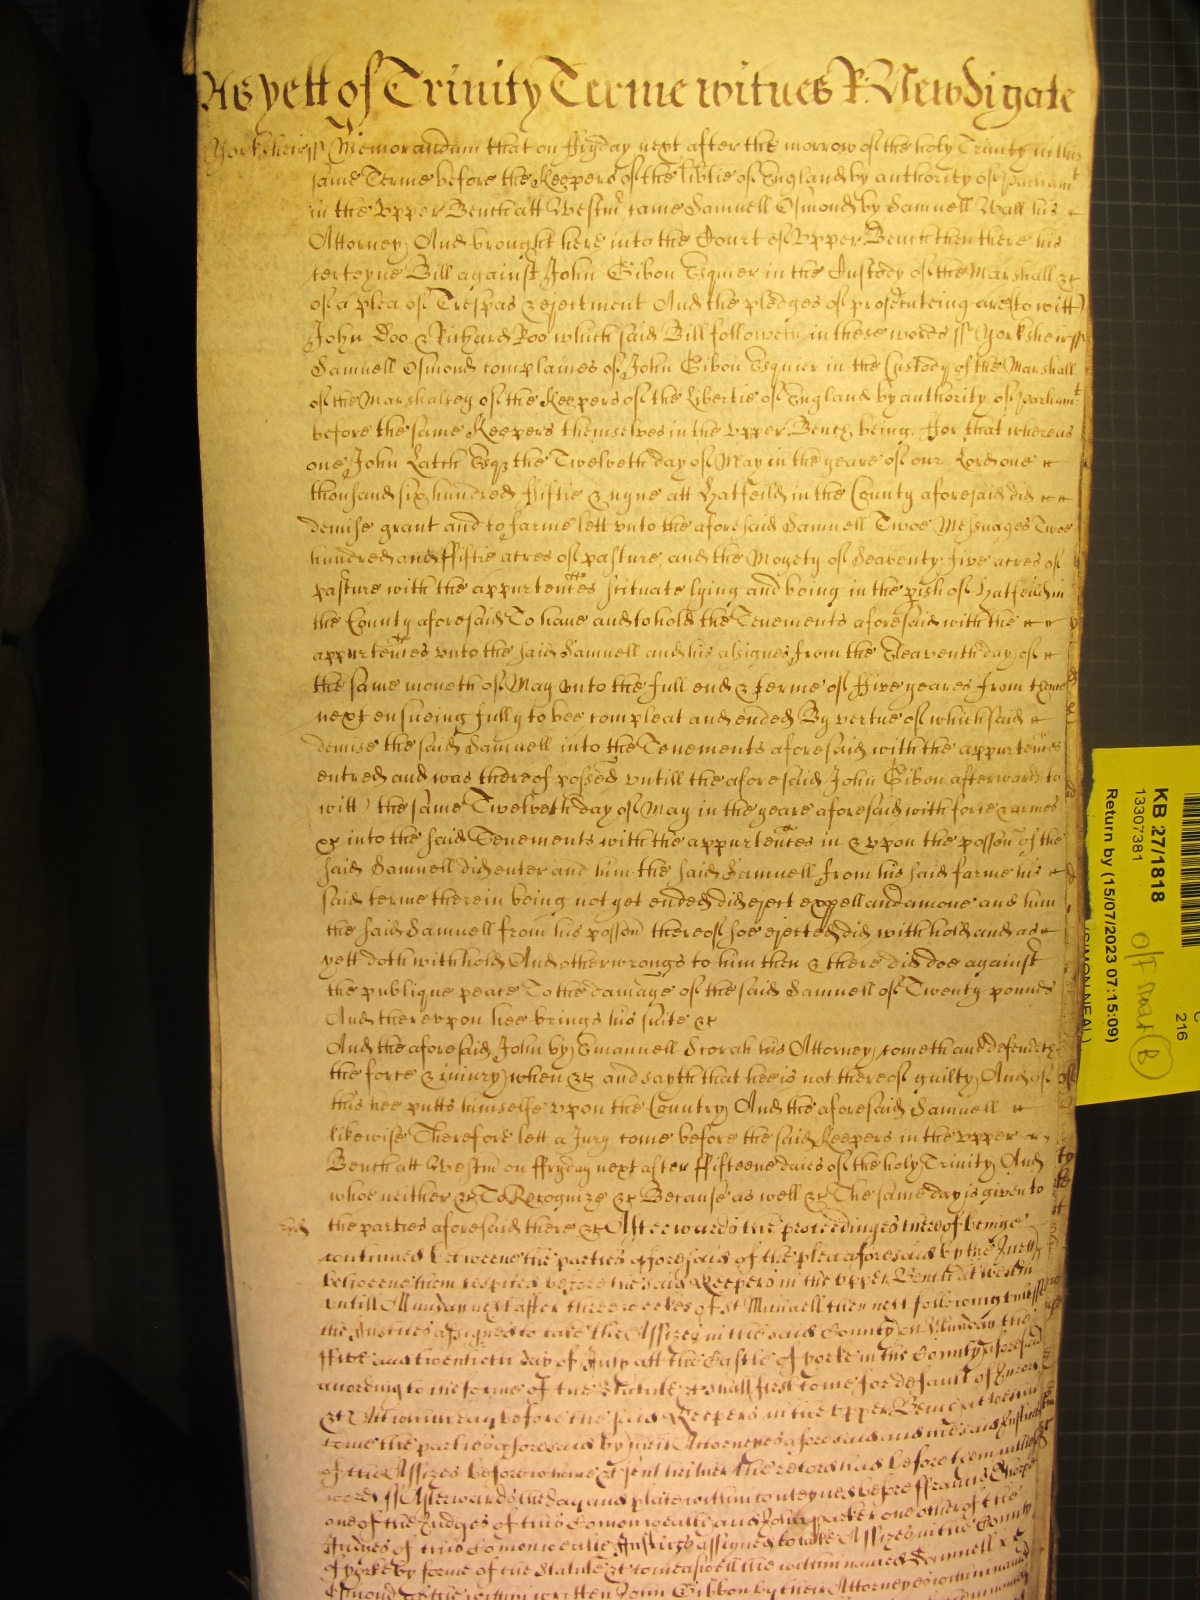 As yett of Trinity Terme witnes R: Newdigate
Yorksheir ss Memorandum that on ffryday next after the morrow of the holy Trinity in this
same Terme before the Keepers of the libtie of England by authority of Parliamt
in the Vpper Bench att Westmr came Samuell Osmond by Samuell Wall his
Attorney And brought here into the Court of Vpper Bench then there his
certeyne Bill against John Gibon Esquier in the Custody of the Marshall &c
of a plea of Trespas & ejectment And the pledges of prosecuteing are (to witt)
John Doo & Richard Roo which said Bill followeth in these words ss Yorksheir ss
Samuell Osmond complaines of John Gibon Esquier in the Custody of the Marshall
of the Marshalsey of the Keepers of the Libertie of England by authority of Parliamt
before the same Keepers themselves in the Vpper Bench being. ffor that whereas
one John Latch Esqr the Twelveth day of May in the yeare of our Lord one
thousand six hundred ffiftie & nyne att Hatfeild in the County aforesaid did
demise grant and to farme lett vnto the aforesaid Samuell Twoe Messuages Twoe
hundred and ffiftie acres of pasture and the Moyety of Seaventy five acres of
pasture with the appurtences scituate lying and being in the pish of Hatfeild in
the County aforesaid To have and to hold the Tenements aforesaid with the
appurtences vnto the said Samuell and his assignes from the Eleaventh day of
the same moneth of May vnto the full end & terme of ffive yeares from thence
next ensueing fully to bee compleat and ended By vertue of which said
demise the said Samuell into the Tenements aforesaid with the appurtences
entred and was thereof possed vntill the aforesaid John Gibon afterward to
witt) the same Twelveth day of May in the yeare aforesaid with force & armes
&c into the said Tenements with the appurtences in & vpon the posson of the
said Samuell did enter and him the said Samuell from his said farme his
said terme therein being not yet ended did eject expell and amove and him
the said Samuell from his posson thereof soe ejected did withhold and as
yett doth withhold And other wrongs to him then & there did doe against
the publique peace To the damage of the said Samuell of Twenty pounds
And therevpon hee brings his suite &c
And the aforesaid John by Emanuell Scorah his Attorney cometh and defendeth
the force & iniury when &c and sayth that hee is not thereof guilty And of
this hee putts himselfe vpon the Country And the aforesaid Samuell
likewise Therefore lett a Jury come before the said Keepers in the vpper
Bench att Westmr on ffryday next after ffifteene daies of the holy Trinity And
whoe neither &c To Recognize &c Because as well &c The same day is given to
the parties aforesaid there &c Afterwards the proceedinges thereof beinge
continued betweene the parties aforesaid of the plea aforesaid by the Jurie
betweene them respited before the said Keepers in the Vpper Bench at Westmr
vntill Munday next after three weekes of st Michaell then next following vnlesse
the Justices assigned to take the Assizes in the said County on Munday the
ffive and twentieth day of July att the Castle of Yorke in the County aforesaid
according to the forme of the Statute &c shall first come for default of Jurors
&c At which day before the said Keepers in the vpper Bench at Westmr
come the parties aforesaid by their Attorneyes aforesaid and the said Justices
of the Assizes before whome &c sent hither the record had before them in these
words ss Afterwards the day and place within conteyned before ffrancis Thorpe
one of the Judges of this Comonwealth and John Parker one other of the
Judges of this Comonwealth Justices assigned to take Assizes in the County
of Yorke by forme of the Statute &c come aswell the within named Samuell
Osmond as the within written John Gibbon by their Attorneyes within named
KB 27/1818
13307381
Return by (15/07/2023 07:15:09)
(SIMON NEAL)
216